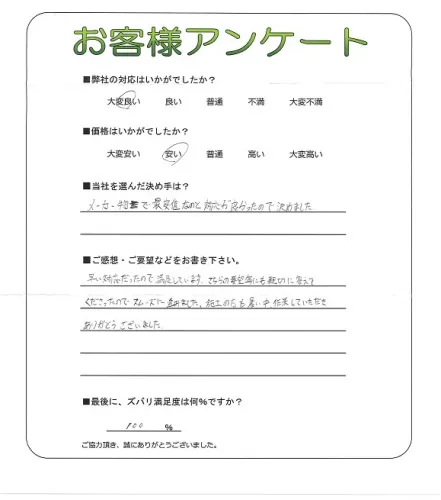 お客様アンケート
■弊社の対応はいかがでしたか?
大変良い 良い 普通 不満 大変不満
■価格はいかがでしたか?
大変安い 安い 普通 高い 大変高い
■当社を選んだ決め手は?
メーカー物置で最安値なのと対応が良かったので決めました
■ご感想・ご要望などをお書き下さい。
早い対応だったので満足しています。こちらの要望等にも親切に答えて
くださったのでスムーズに進みました。施工の日も暑い中作業していただき
ありがとうございました。
■最後に、ズバリ満足度は何%ですか?
100 %
ご協力頂き、誠にありがとうございました。